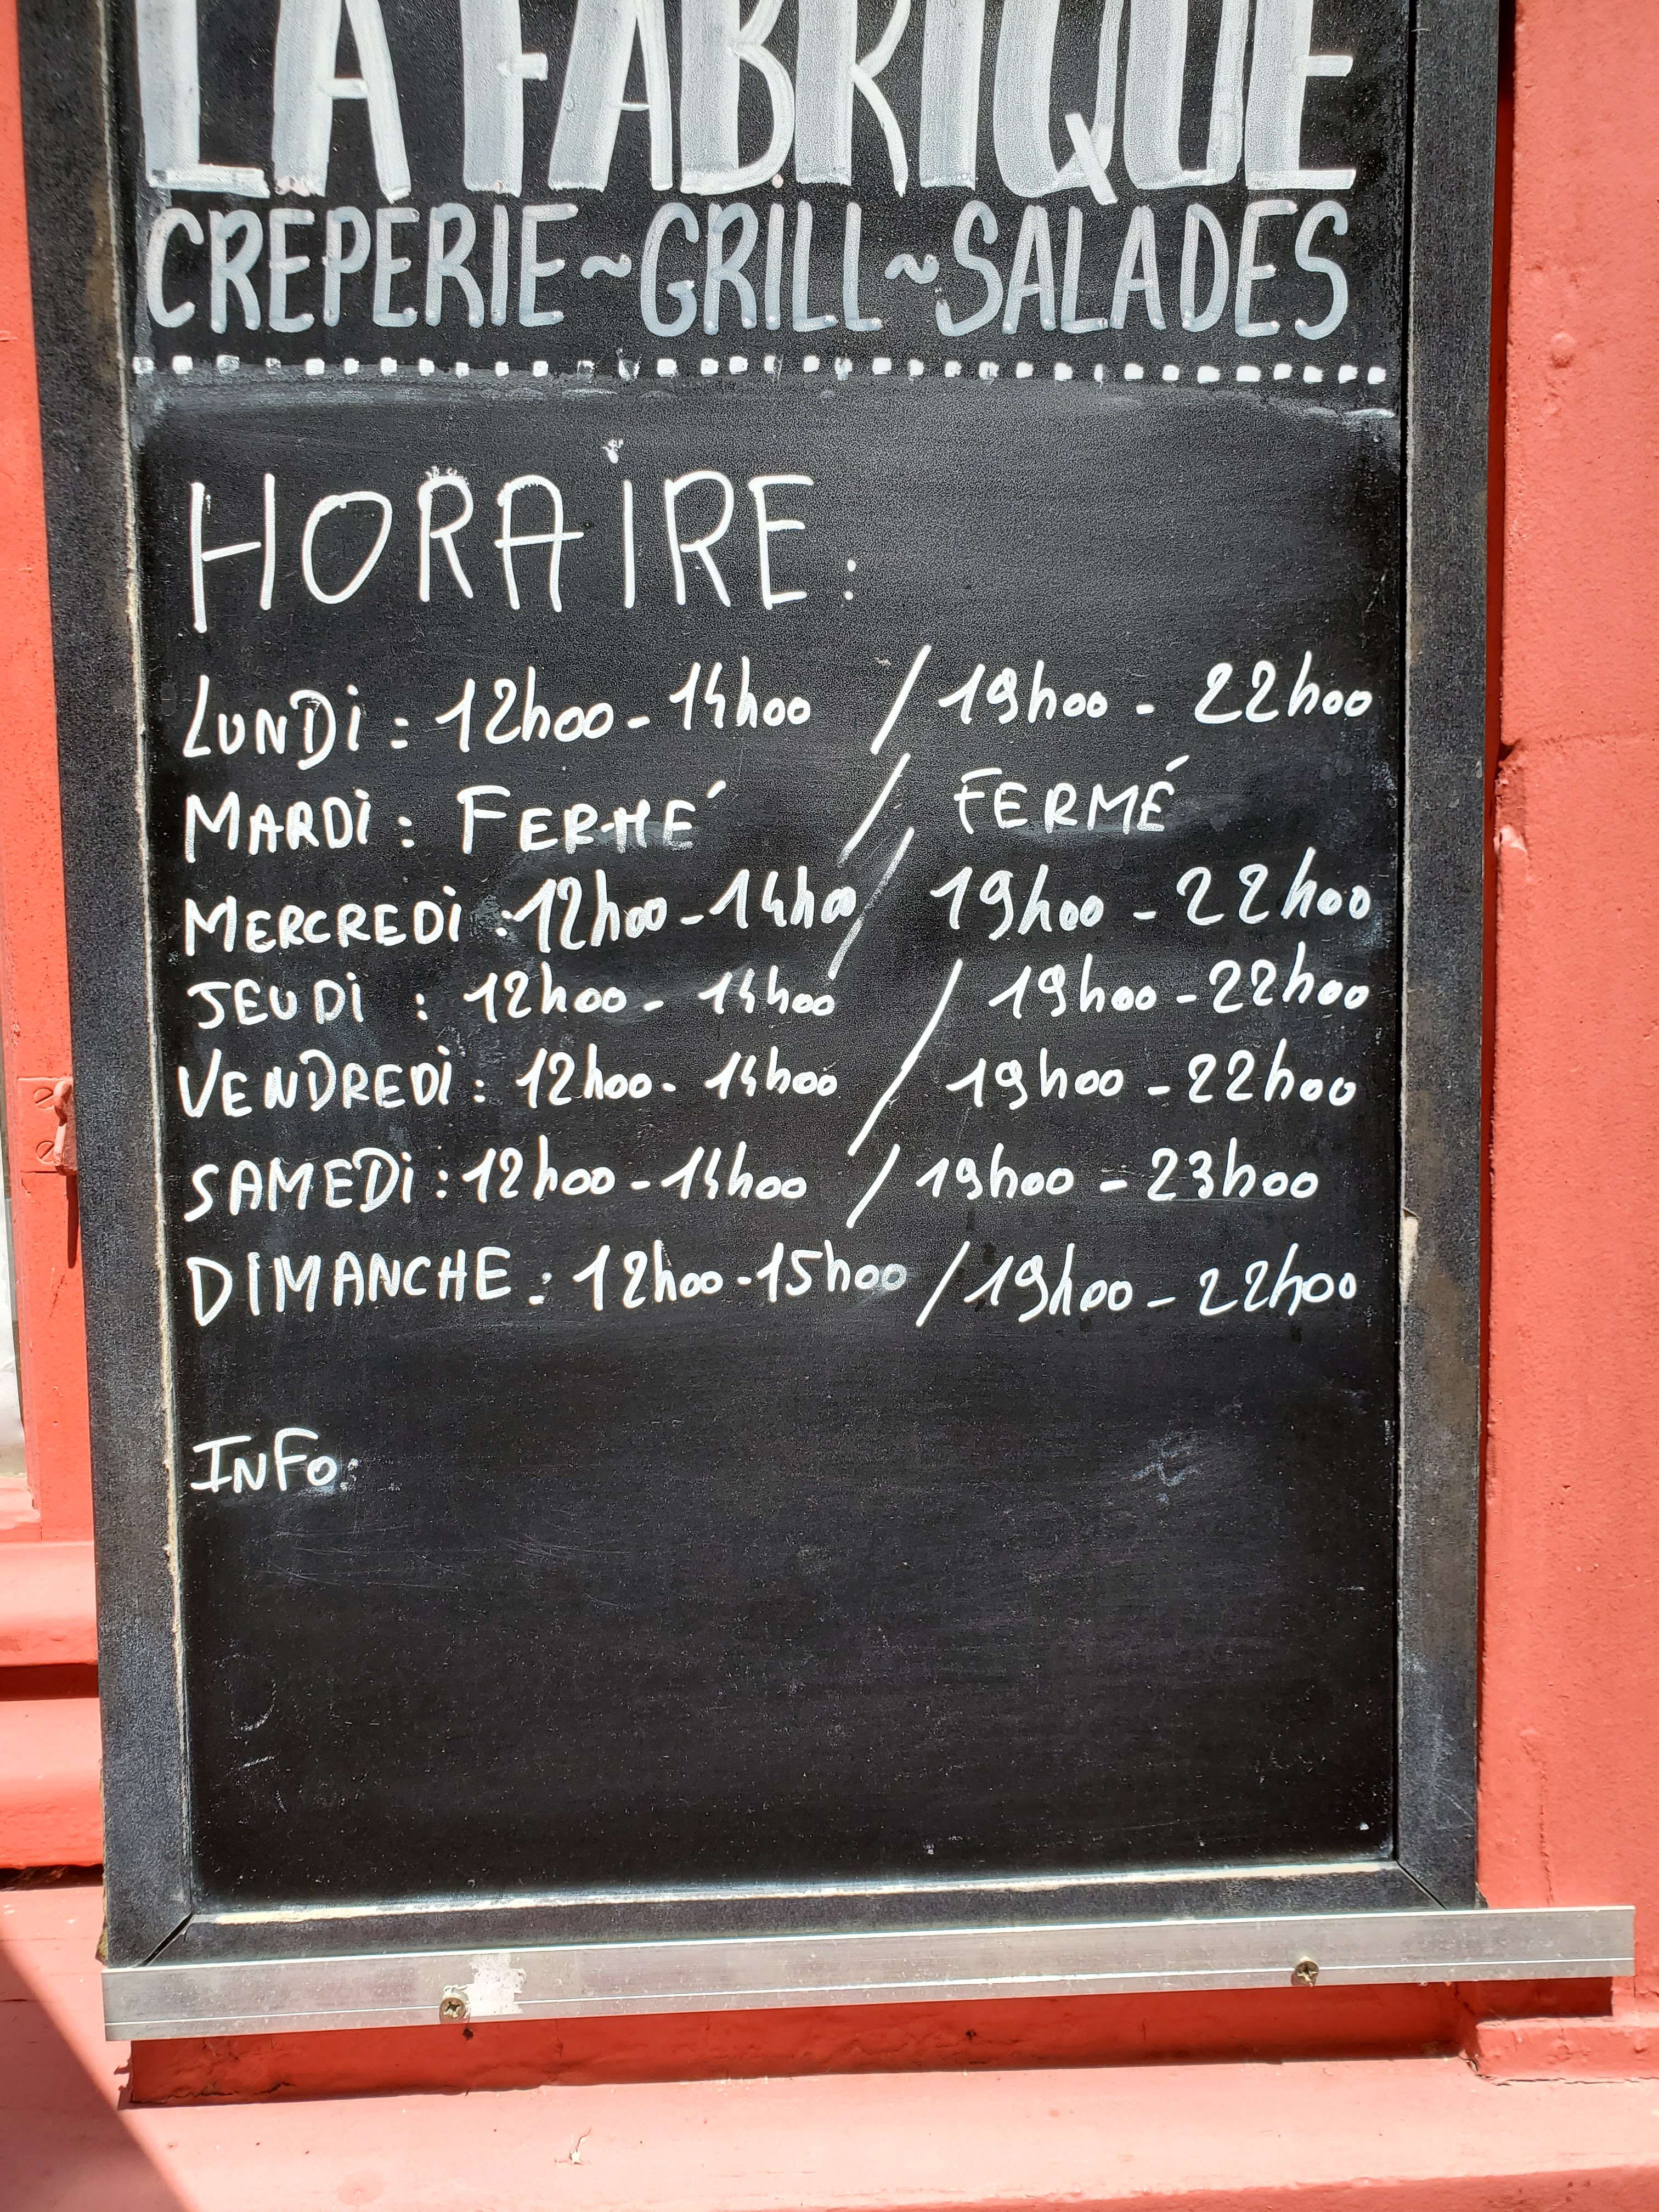 LA FABRIQUE
CREPERIE~GRILL~SALADES
HORAIRE:
LUNDI : 12h00 - 14h00 / 19h00 - 22h00
MARDI : FERMÉ / FERMÉ
MERCREDI : 12h00 - 14h00 / 19h00 - 22h00
JEUDI : 12h00 - 14h00 / 19h00 - 22h00
VENDREDI : 12h00 - 14h00 / 19h00 - 22h00
SAMEDI : 12h00 - 14h00 / 19h00 - 23h00
DIMANCHE : 12h00 - 15h00 / 19h00 - 22h00
INFO: